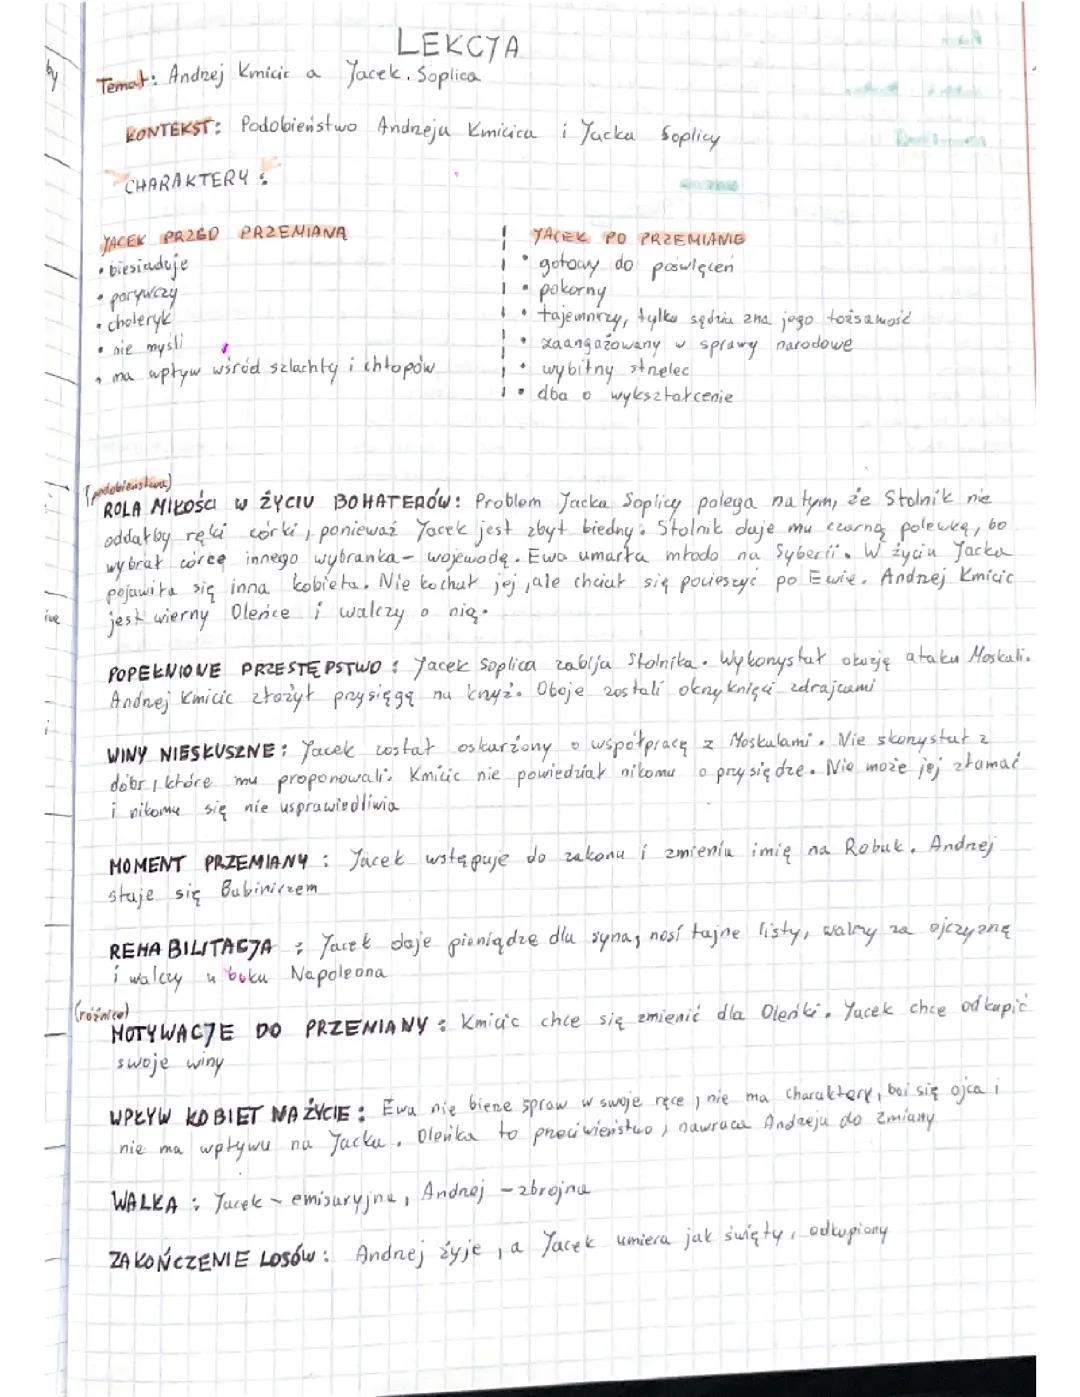 LEKCJA
Temat: Andrzej Kmicic a Jacek Soplica
KONTEKST: Podobieństwo Andrzeja Kmicica i Jacka Soplicy
CHARAKTERY:
JACEK PRZED PRZEMIANĄ
• biesiaduje
• porywczy
• choleryk
• nie myśli
• ma wpływ wśród szlachty i chłopów
JACEK PO PRZEMIANIE
• gotowy do poświęceń
• pokorny
• tajemniczy, tylko sędzia zna jego tożsamość
• zaangażowany w sprawy narodowe
• wybitny strzelec
• dba o wykształcenie
(podobieństwa)
ROLA MIŁOŚCI W ŻYCIU BOHATERÓW: Problem Jacka Soplicy polega na tym, że Stolnik nie
oddałby ręki córki, ponieważ Jacek jest zbyt biedny. Stolnik daje mu czarną polewkę, bo
wybrał córce innego wybranka - wojewodę. Ewa umarła młodo na Syberii. W życiu Jacka
pojawiła się inna kobieta. Nie kochał jej, ale chciał się pocieszyć po Ewie. Andrzej Kmicic
jest wierny Oleńce i walczy o nią.
POPEŁNIONE PRZESTĘPSTWO: Jacek Soplica zabija Stolnika. Wykorzystał okazję ataku Moskali.
Andrzej Kmicic złożył przysięgę na krzyż. Oboje zostali okrzyknięci zdrajcami
WINY NIESŁUSZNE: Jacek został oskarżony o współpracę z Moskalami. Nie skorzystał z
dóbr, które mu proponowali. Kmicic nie powiedział nikomu o przysiędze. Nie może jej złamać
i nikomu się nie usprawiedliwia
MOMENT PRZEMIANY: Jacek wstępuje do zakonu i zmienia imię na Robak. Andrzej
staje się Babiniczem
REHABILITACJA: Jacek daje pieniądze dla syna, nosi tajne listy, walczy za ojczyznę
i walczy u boku Napoleona
(różnice)
MOTYWACJE DO PRZEMIANY: Kmicic chce się zmienić dla Oleńki. Jacek chce odkupić
swoje winy
WPŁYW KOBIET NA ŻYCIE: Ewa nie bierze spraw w swoje ręce, nie ma charakteru, boi się ojca i
nie ma wpływu na Jacka. Oleńka to przeciwieństwo, nawraca Andrzeja do zmiany
WALKA: Jacek - emisaryjna, Andrzej - zbrojna
ZAKOŃCZENIE LOSÓW: Andrzej żyje, a Jacek umiera jak święty, odkupiony